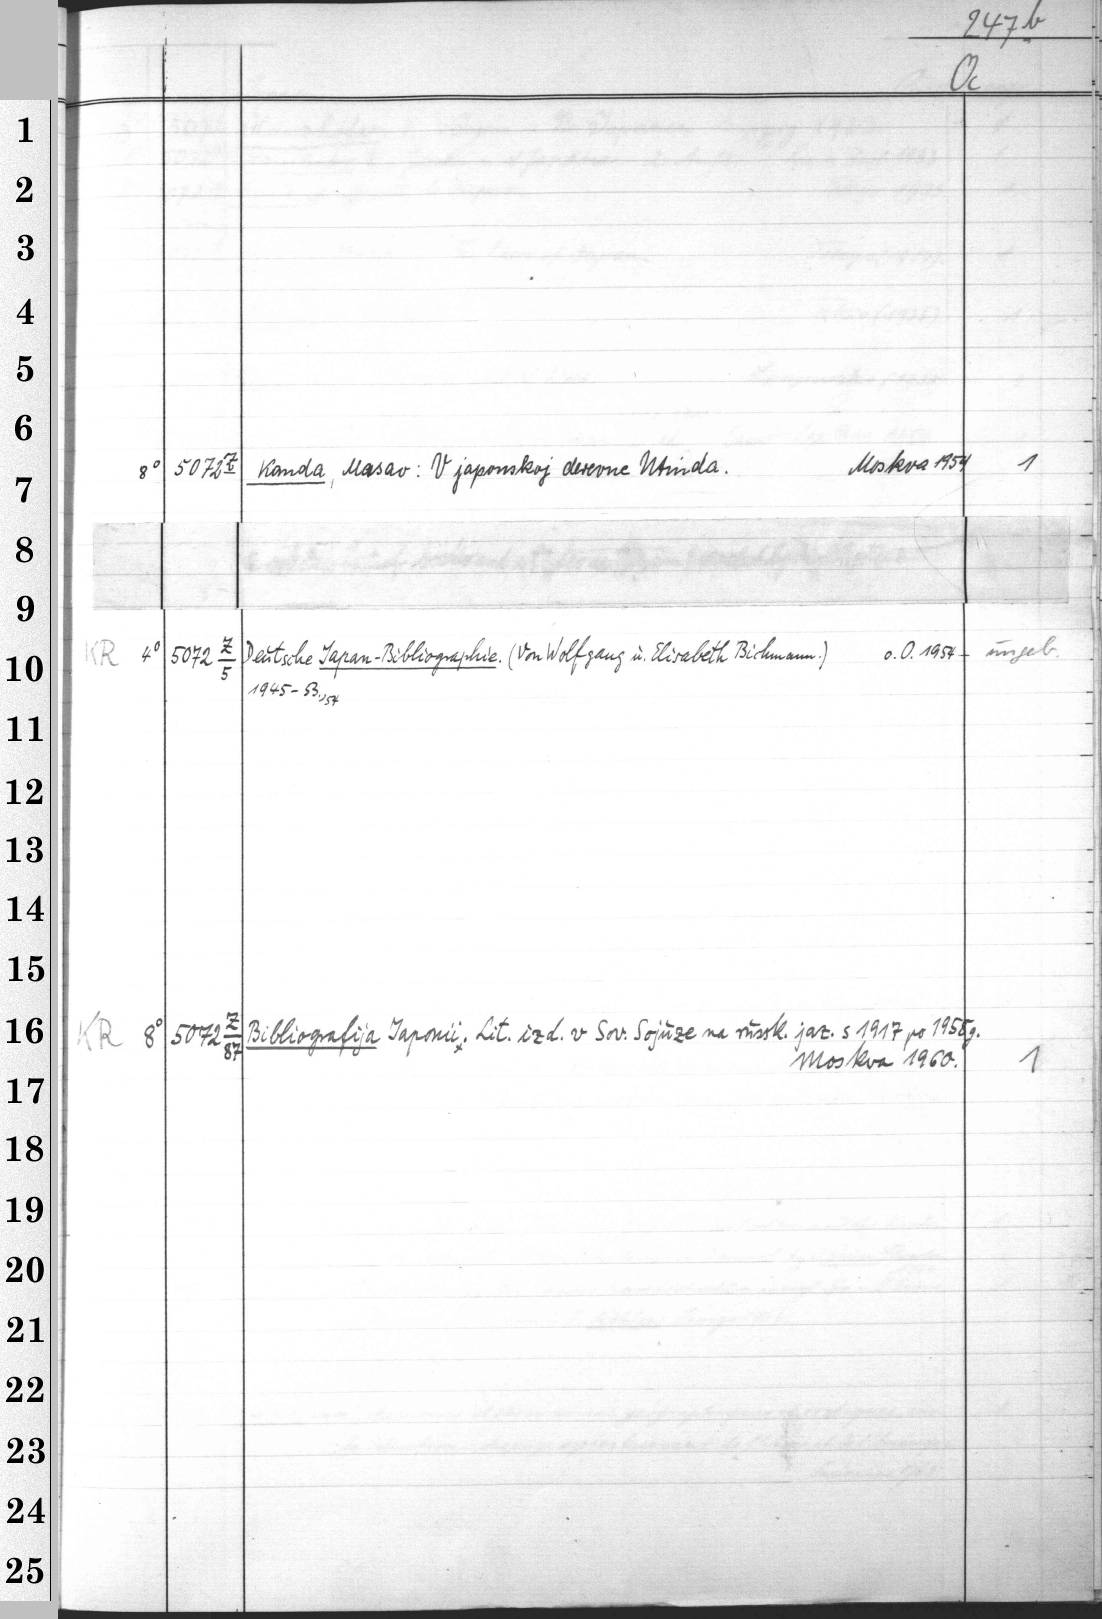 247b
Oc
1
2
3
4
5
6
8° 5072 Z Kanda, Masao: V japonskoj derevne Utinda. Moskva 1954 1
7
8
9
KR 4° 5072 Z/5 Deutsche Japan-Bibliographie. (Von Wolfgang u. Elisabeth Bichmann.) o.O. 1954 ungeb.
10
1945-53,54
11
12
13
14
15
KR 8° 5072 Z/87 Bibliografija Japonii. Lit. izd. v Sov. Sojuze na russk. jaz. s 1917 po 1958 g.
16
Moskva 1960. 1
17
18
19
20
21
22
23
24
25